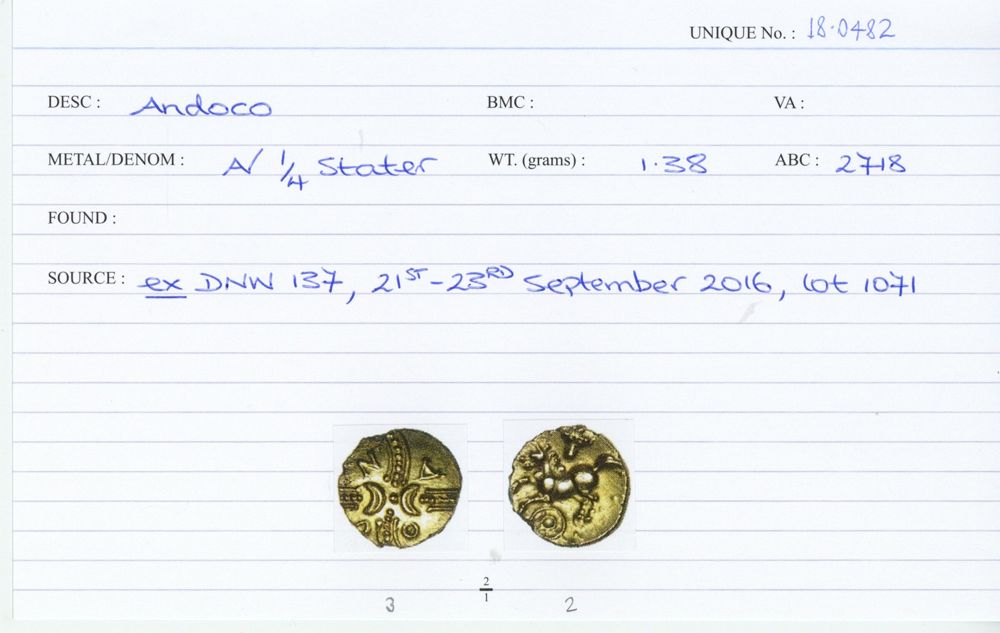 UNIQUE No. : 18·0482
DESC : Andoco BMC : VA :
METAL/DENOM : A/ 1/4 Stater WT. (grams) : 1·38 ABC : 2718
FOUND :
SOURCE : ex DNW 137, 21ST-23RD September 2016, lot 1071
N A
O
2
1
3 2